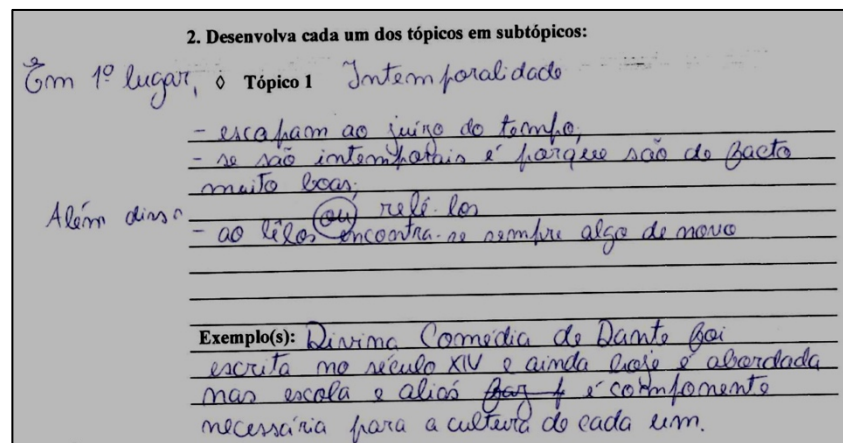 2. Desenvolva cada um dos tópicos em subtópicos:
Em 1º lugar, ◊ Tópico 1 Intemporalidade
- escapam ao juízo do tempo;
- se são intemporais é porque são de facto
muito boas;
Além disso
ou relê-los
- ao lêlos encontra-se sempre algo de novo
Exemplo(s): Divina Comédia de Dante foi
escrita no século XIV e ainda hoje é abordada
nas escola e aliás faz f é componente
necessária para a cultura de cada um.